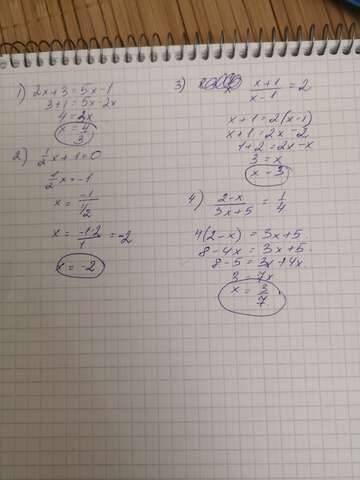 1) 2x+3=5x-1
3+1=5x-2x
4=3x
x=4/3
2) 1/2 x+1=0
1/2 x=-1
x= -1 / 1/2
x= -1·2 / 1 =-2
x=-2
3) x+1 / x-1 =2
x+1=2(x-1)
x+1=2x-2
1+2=2x-x
3=x
x=3
4) 2-x / 3x+5 = 1/4
4(2-x)=3x+5.
8-4x=3x+5.
8-5=3x+4x.
3=7x
x=3/7.